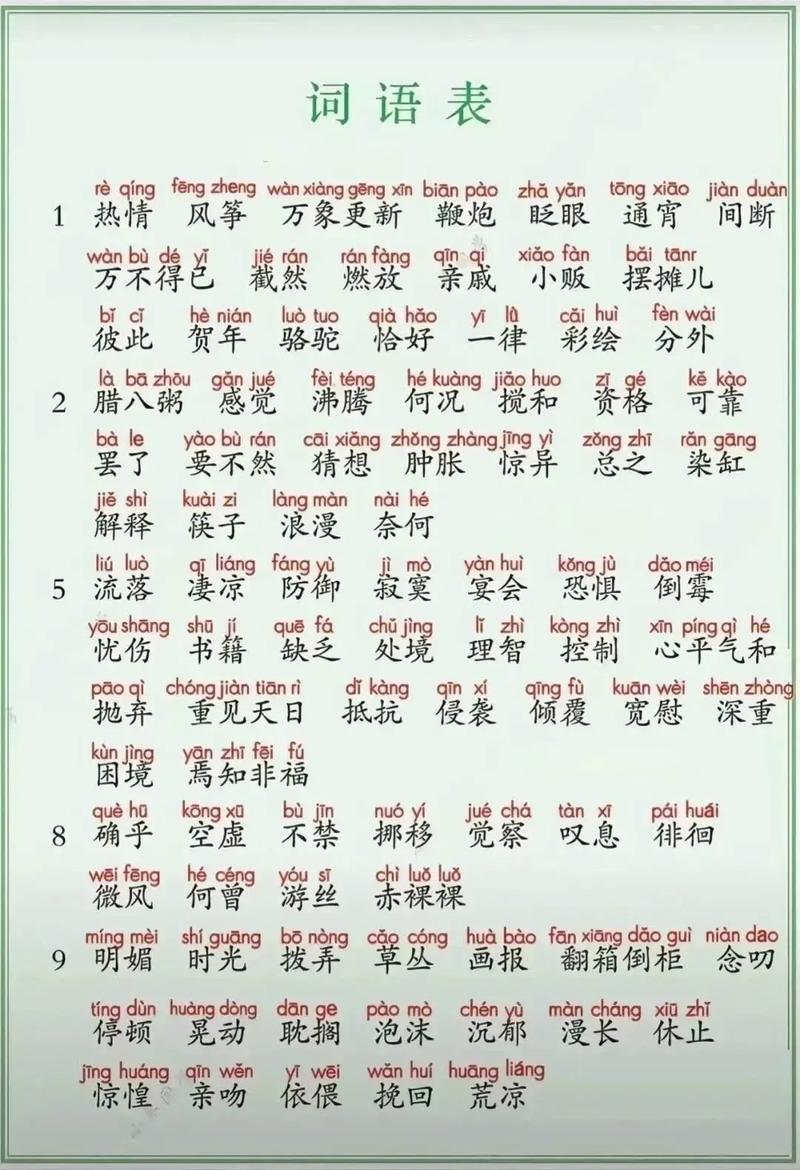 词语表
rè qíng fēng zheng wàn xiàng gēng xīn biān pào zhǎ yǎn tōng xiāo jiàn duàn
1 热情 风筝 万象更新 鞭炮 眨眼 通宵 间断
wàn bù dé yǐ jié rán rán fàng qīn qi xiǎo fàn bǎi tānr
万不得已 截然 燃放 亲戚 小贩 摆摊儿
bǐ cǐ hè nián luò tuo qià hǎo yī lǜ cǎi huì fèn wài
彼此 贺年 骆驼 恰好 一律 彩绘 分外
là bā zhōu gǎn jué fèi téng hé kuàng jiǎo huo zī gé kě kào
2 腊八粥 感觉 沸腾 何况 搅和 资格 可靠
bà le yào bù rán cāi xiǎng zhǒng zhàng jīng yì zǒng zhī rǎn gāng
罢了 要不然 猜想 肿胀 惊异 总之 染缸
jiě shì kuài zi làng màn nài hé
解释 筷子 浪漫 奈何
liú luò qī liáng fáng yù jì mò yàn huì kǒng jù dǎo méi
5 流落 凄凉 防御 寂寞 宴会 恐惧 倒霉
yōu shāng shū jí quē fá chǔ jìng lǐ zhì kòng zhì xīn píng qì hé
忧伤 书籍 缺乏 处境 理智 控制 心平气和
pāo qì chóng jiàn tiān rì dǐ kàng qīn xí qīng fù kuān wèi shēn zhòng
抛弃 重见天日 抵抗 侵袭 倾覆 宽慰 深重
kùn jìng yān zhī fēi fú
困境 焉知非福
què hū kōng xū bù jīn nuó yí jué chá tàn xī pái huái
8 确乎 空虚 不禁 挪移 觉察 叹息 徘徊
wēi fēng hé céng yóu sī chì luǒ luǒ
微风 何曾 游丝 赤裸裸
míng mèi shí guāng bō nòng cǎo cóng huà bào fān xiāng dǎo guì niàn dao
9 明媚 时光 拨弄 草丛 画报 翻箱倒柜 念叨
tíng dùn huàng dòng dān ge pào mò chén yù màn cháng xiū zhǐ
停顿 晃动 耽搁 泡沫 沉郁 漫长 休止
jīng huáng qīn wěn yī wēi wǎn huí huāng liáng
惊惶 亲吻 依偎 挽回 荒凉